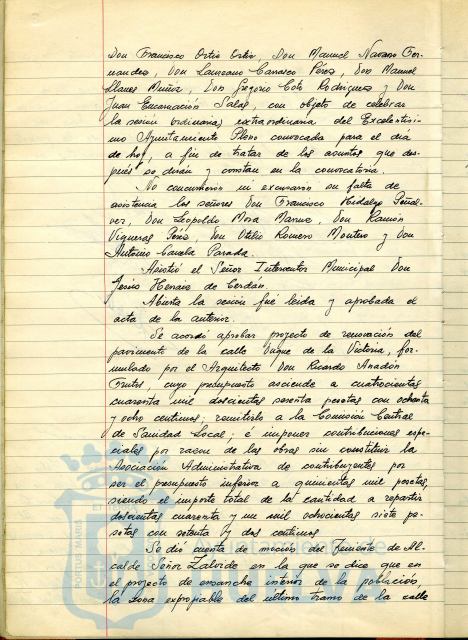 Don Francisco Ortiz Ortiz, Don Manuel Navarro Fer-
nandez, Don Laureano Carrasco Pérez, Don Manuel
Llanes Muñoz, Don Gregorio Coto Rodriguez y Don
Juan Encarnación Salas, con objeto de celebrar
la sesión ordinaria, extraordinaria del Excelentísi-
mo Ayuntamiento Pleno convocada para el dia
de hoy, a fin de tratar de los asuntos que des-
pués se dirán y constan en la convocatoria.
No concurrieron ni excusaron su falta de
asistencia los señores Don Francisco Hidalgo Peñal-
ver, Don Leopoldo Mora Don Ramón
Vigueras Pérez, Don Otilio Romero Montero y Don
Antonio Parada.
Asistió el Señor Interventor Municipal Don
Jesús Henaiz de Cerdán.
Abierta la sesión fué leida y aprobada el
acta de la anterior.
Se acordó aprobar proyecto de renovación del
pavimento de la calle Duque de la Victoria, for-
mulado por el Arquitecto Don Ricardo Anadón
Frutos, cuyo presupuesto asciende a cuatrocientas
cuarenta mil doscientas sesenta pesetas con ochenta
y ocho centimos; remitirlo a la Comisión Central
de Sanidad Local; é imponer contribuciones espe-
ciales por razon de las obras sin constituir la
Asociación Administrativa de contribuyentes por
ser el presupuesto inferior a quinientas mil pesetas,
siendo el importe total de la cantidad a repartir
doscientas cuarenta y un mil ochocientas siete pe-
setas con setenta y dos centimos
Se dió cuenta de moción del Teniente de Al-
calde Señor Zalvide en la que se dice que en
el proyecto de ensanche interior de la población,
la zona expropiable del ultimo tramo de la calle